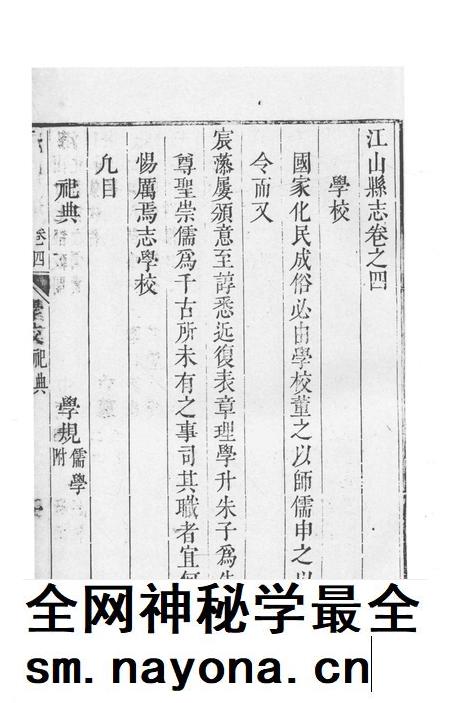 江山縣志卷之四
學校
國家化民成俗必由學校董之以師儒申之以
令而又
宸藻屢頒意至諄悉近復表章理學升朱子爲
尊聖崇儒爲千古所未有之事司其職者宜何
惕厲焉志學校
九目
祀典 學規 儒學附
卷四 祀典
全网神秘学最全
sm.nayona.cn